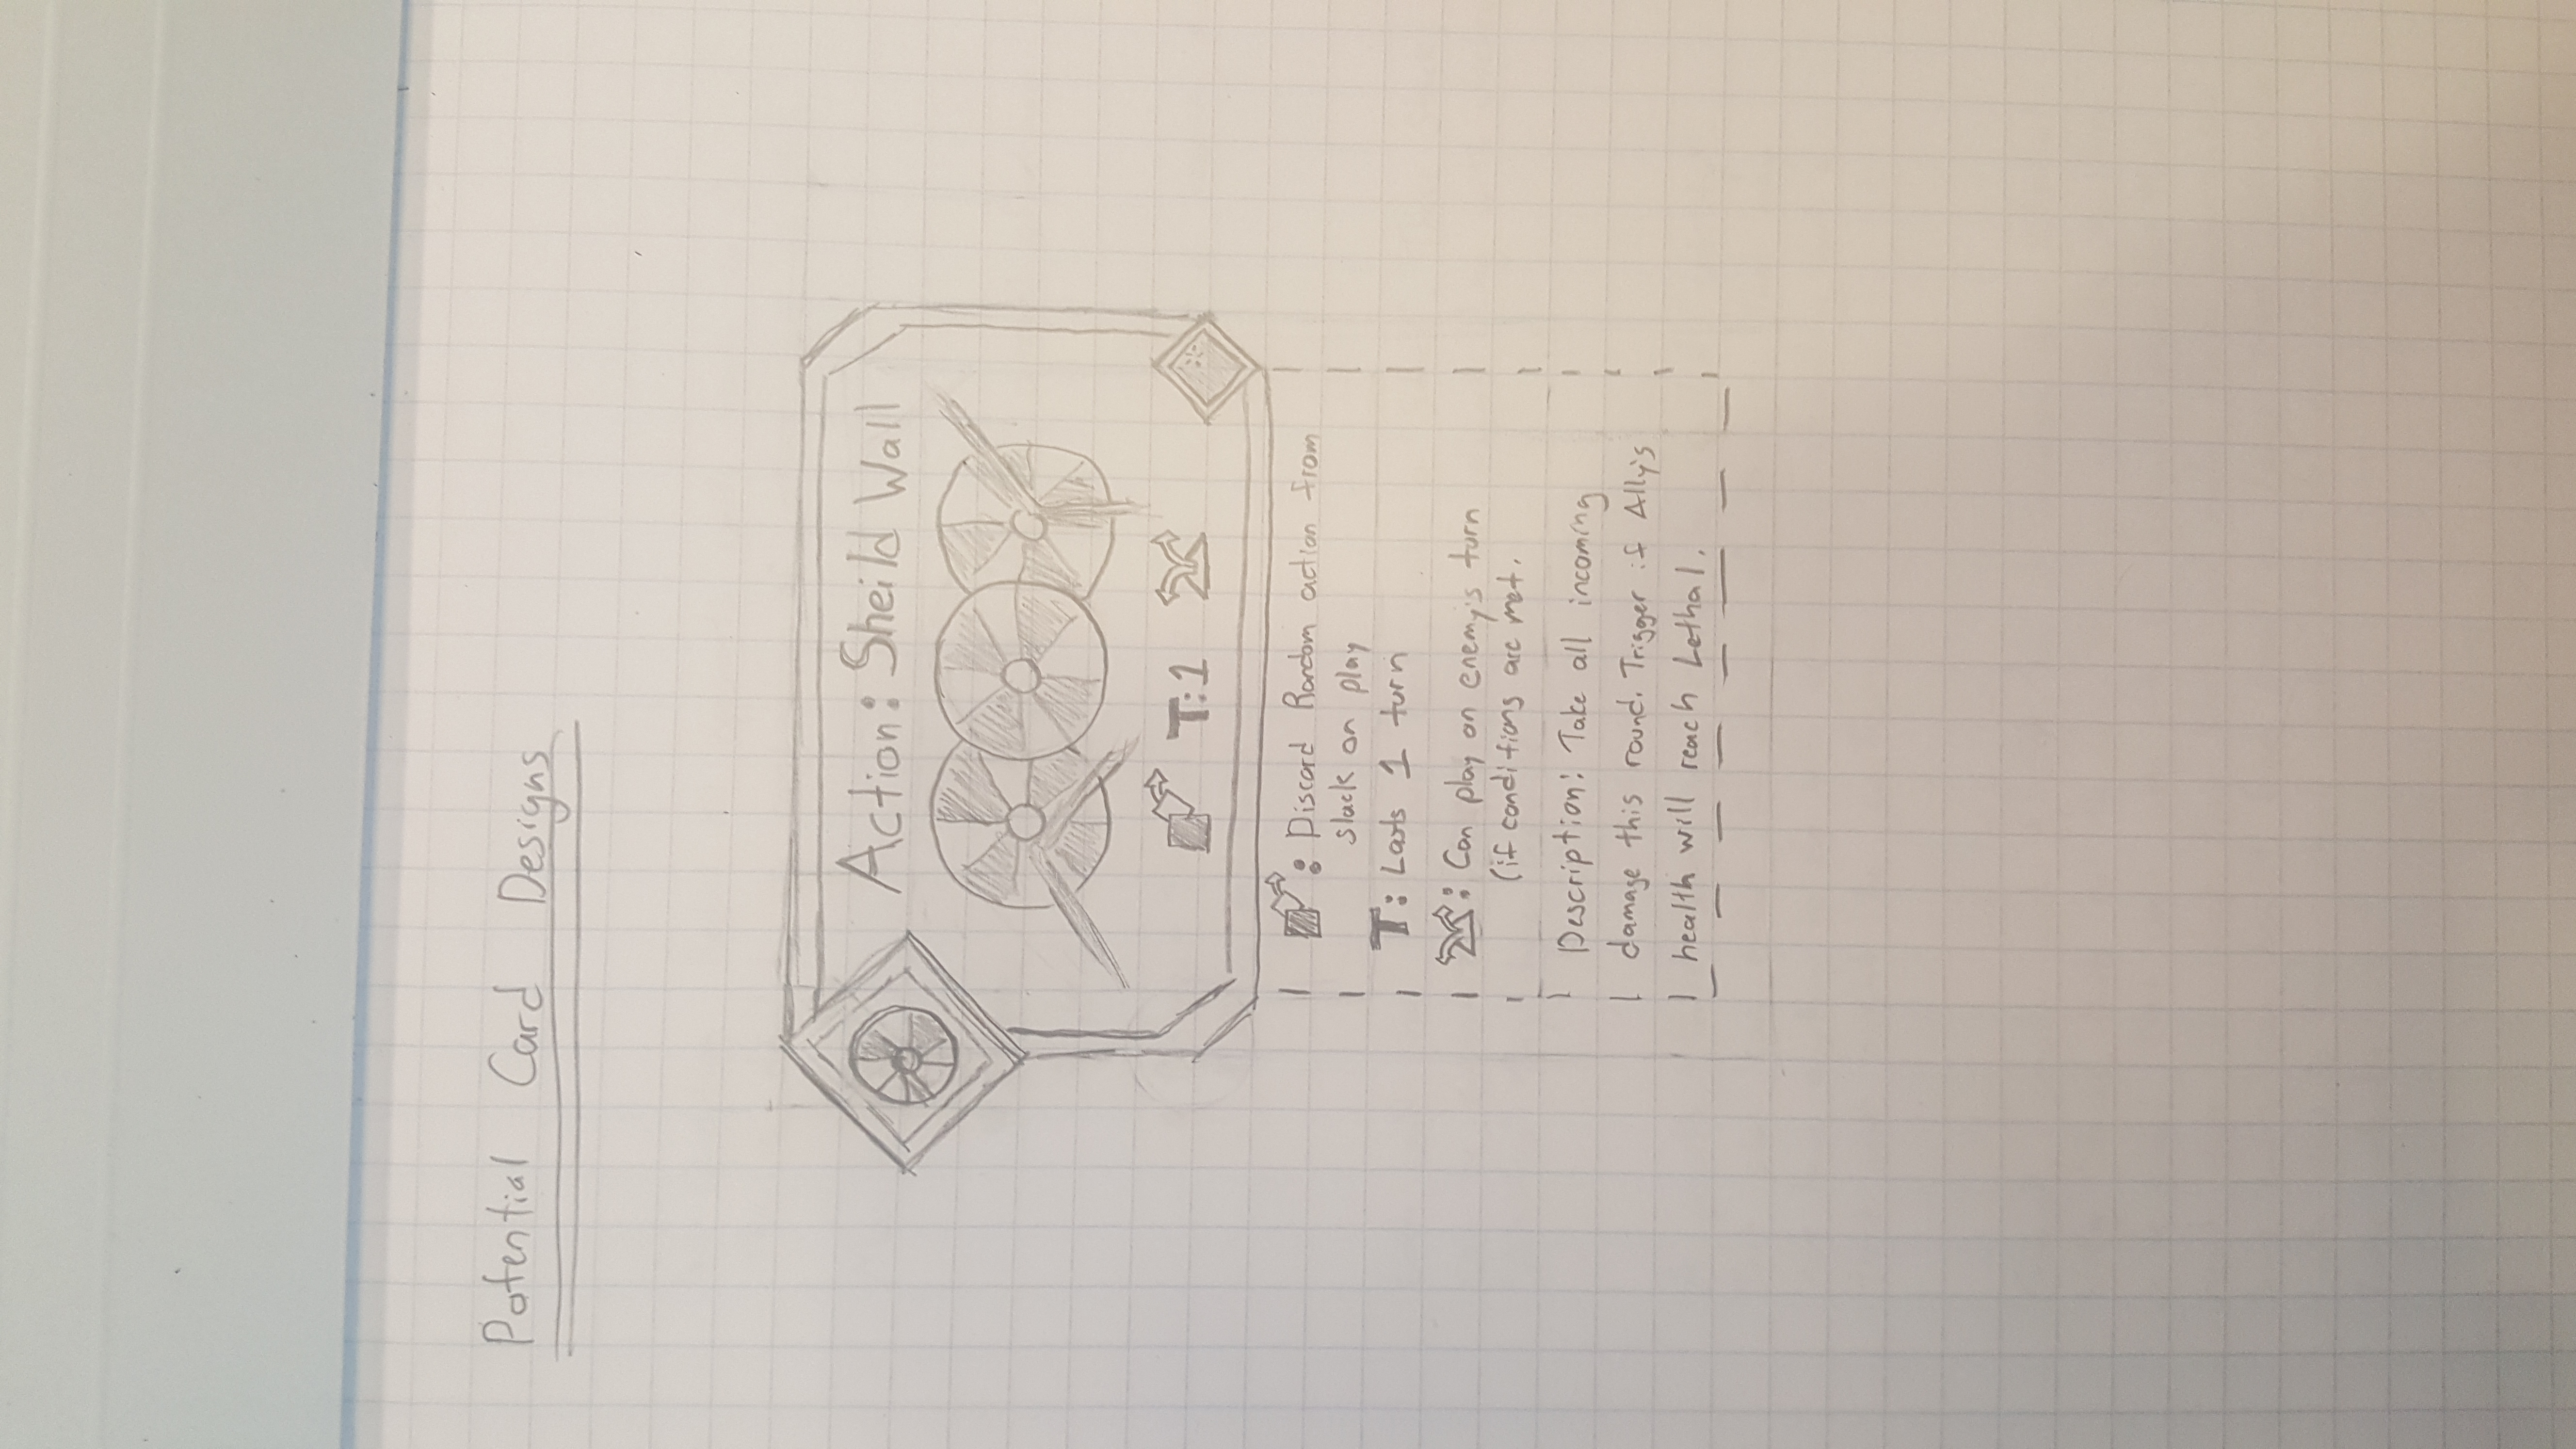 Potential Card Designs
Action: Sheild Wall
T:1
: Discard Random action from
stack on play
T: Lasts 1 turn
: Can play on enemy's turn
(if conditions are met.
Description: Take all incoming
damage this round. Trigger if Ally's
health will reach Lethal.